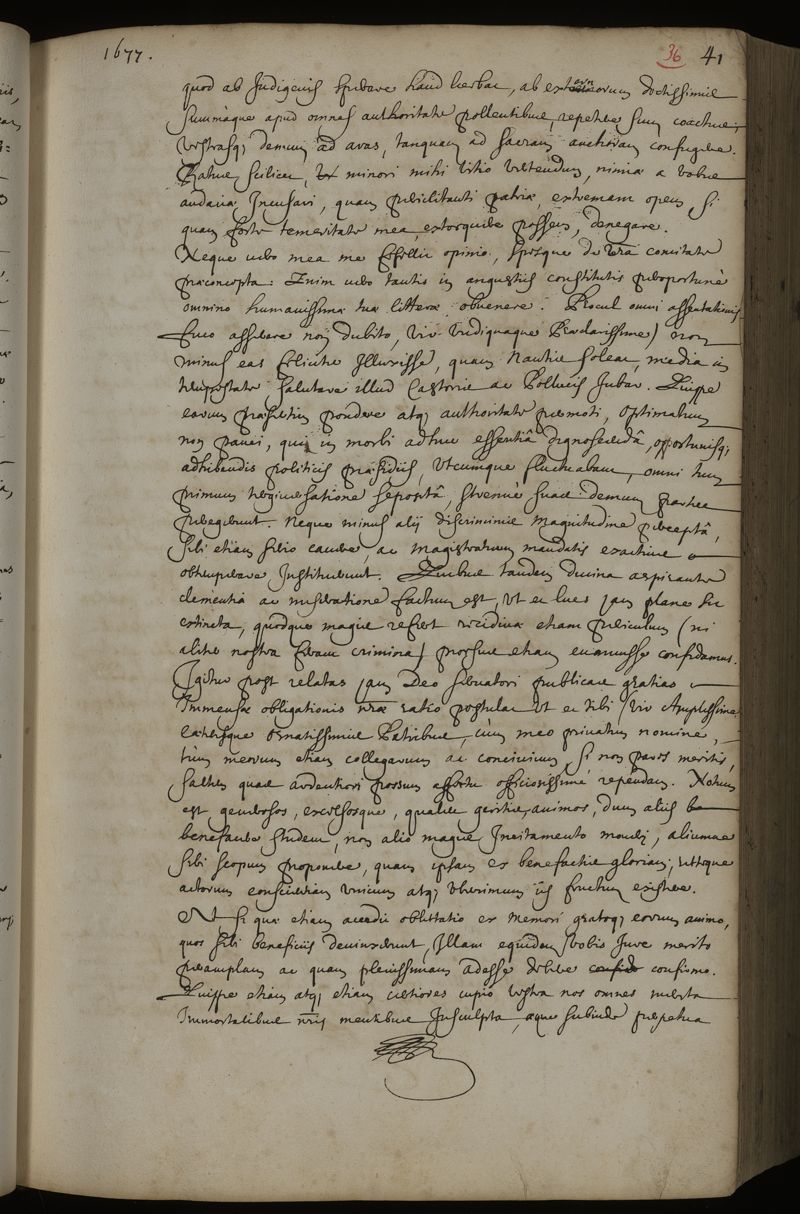 1677.
36 41
quod ab Indigenis sperare haud licebat, ab externorum doctissimis
summâque apud omnes authoritate pollentibus, repetere sum coactus;
vestrasq; demum ad aras, tanquam ad sacram anchoram confugere.
Ratus scilicet, minori mihi vitio vertendum, nimiæ a vobis
audaciæ Incusari, quam periclitanti patriæ, extremam opem, si
quam forte temeritate mea extorquere possem, denegare.
Neque vero mea me fefellit opinio, spesque de vrã comitate
præconcepta: Enim vero tantis in angustiis constitutis peroportunè
omnino humanissimæ tuæ litteræ obvenere. Procul omni assentationis
fuco asserere non dubito, (Vir Undiquaque Præclarissime) non
minus eas feliciter Illuxisse, quam Nautis solet, media in
tempestate salutare illud Castoris ac Pollucis Jubar. Quippe
earum præsertim pondere atq; authoritate permoti, Optimatum
non pauci, qui in morbi adhuc essentiâ dignoscendâ, opportunisq;
adhibendis politicis præsidiis, Utcumque fluctuabant, omni tum
primum tergiversatione sepositâ, strenuè suas demum partes
peregerunt. Neque minus alij discriminis magnitudine perceptâ,
sibi etiam serio cavere, ac Magistratuum mandatis exactius
obtemperare Instituerunt. Quibus tandem divina aspirante
clementia ac miseratione factum est, Ut ea lues jam plane sit
extincta, quodque magis refert recidivæ etiam periculum (ni
aliter nostra ferant crimina) prorsus etiam evanuisse confidamus.
Igitur post relatas jam Deo servatori publicas gratias
Immensæ obligationis nræ ratio postulat Ut et tibi (Vir Amplissime)
cæterisque Ornatissimis Patribus, cùm meo privatim nomine,
tùm meorum etiam collegarum ac concivium, si non pares meritis,
saltem quas ardentiori possum affectu officiosissimè rependam. Notum
est generosos, excelsosque, quales geritis, animos, dum aliis be
benefacere student, non alio magis Incitamento moveri, aliumue
sibi scopum proponere, quam ipsam ex benefactis gloriam; recteque
actorum conscientiam unicum atq; Uberimum iis fructum existere.
At si qua etiam accedit oblectatio ex memori gratoq; eorum animo,
quos sibi beneficiis devinxerunt, Illam equidem vobis Jure merito
peramplam ac quam plenissimam adesse debere confido confirmo.
Quippe etiam atq; etiam certiores cupio vestra nos omnes merita
Immortalibus nris mentibus Insculpta, atque subinde perpetua